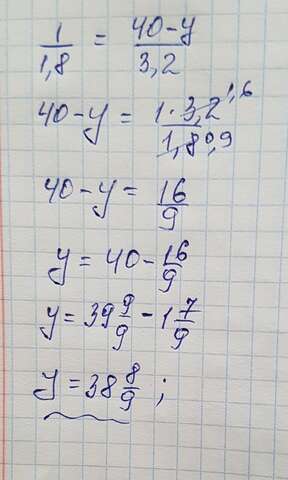 1/1,8 = (40-y)/3,2
40-y = (1·3,2 1,6)/(1,8 0,9)
40-y = 16/9
y = 40 - 16/9
y = 39 9/9 - 1 7/9
y = 38 8/9 ;